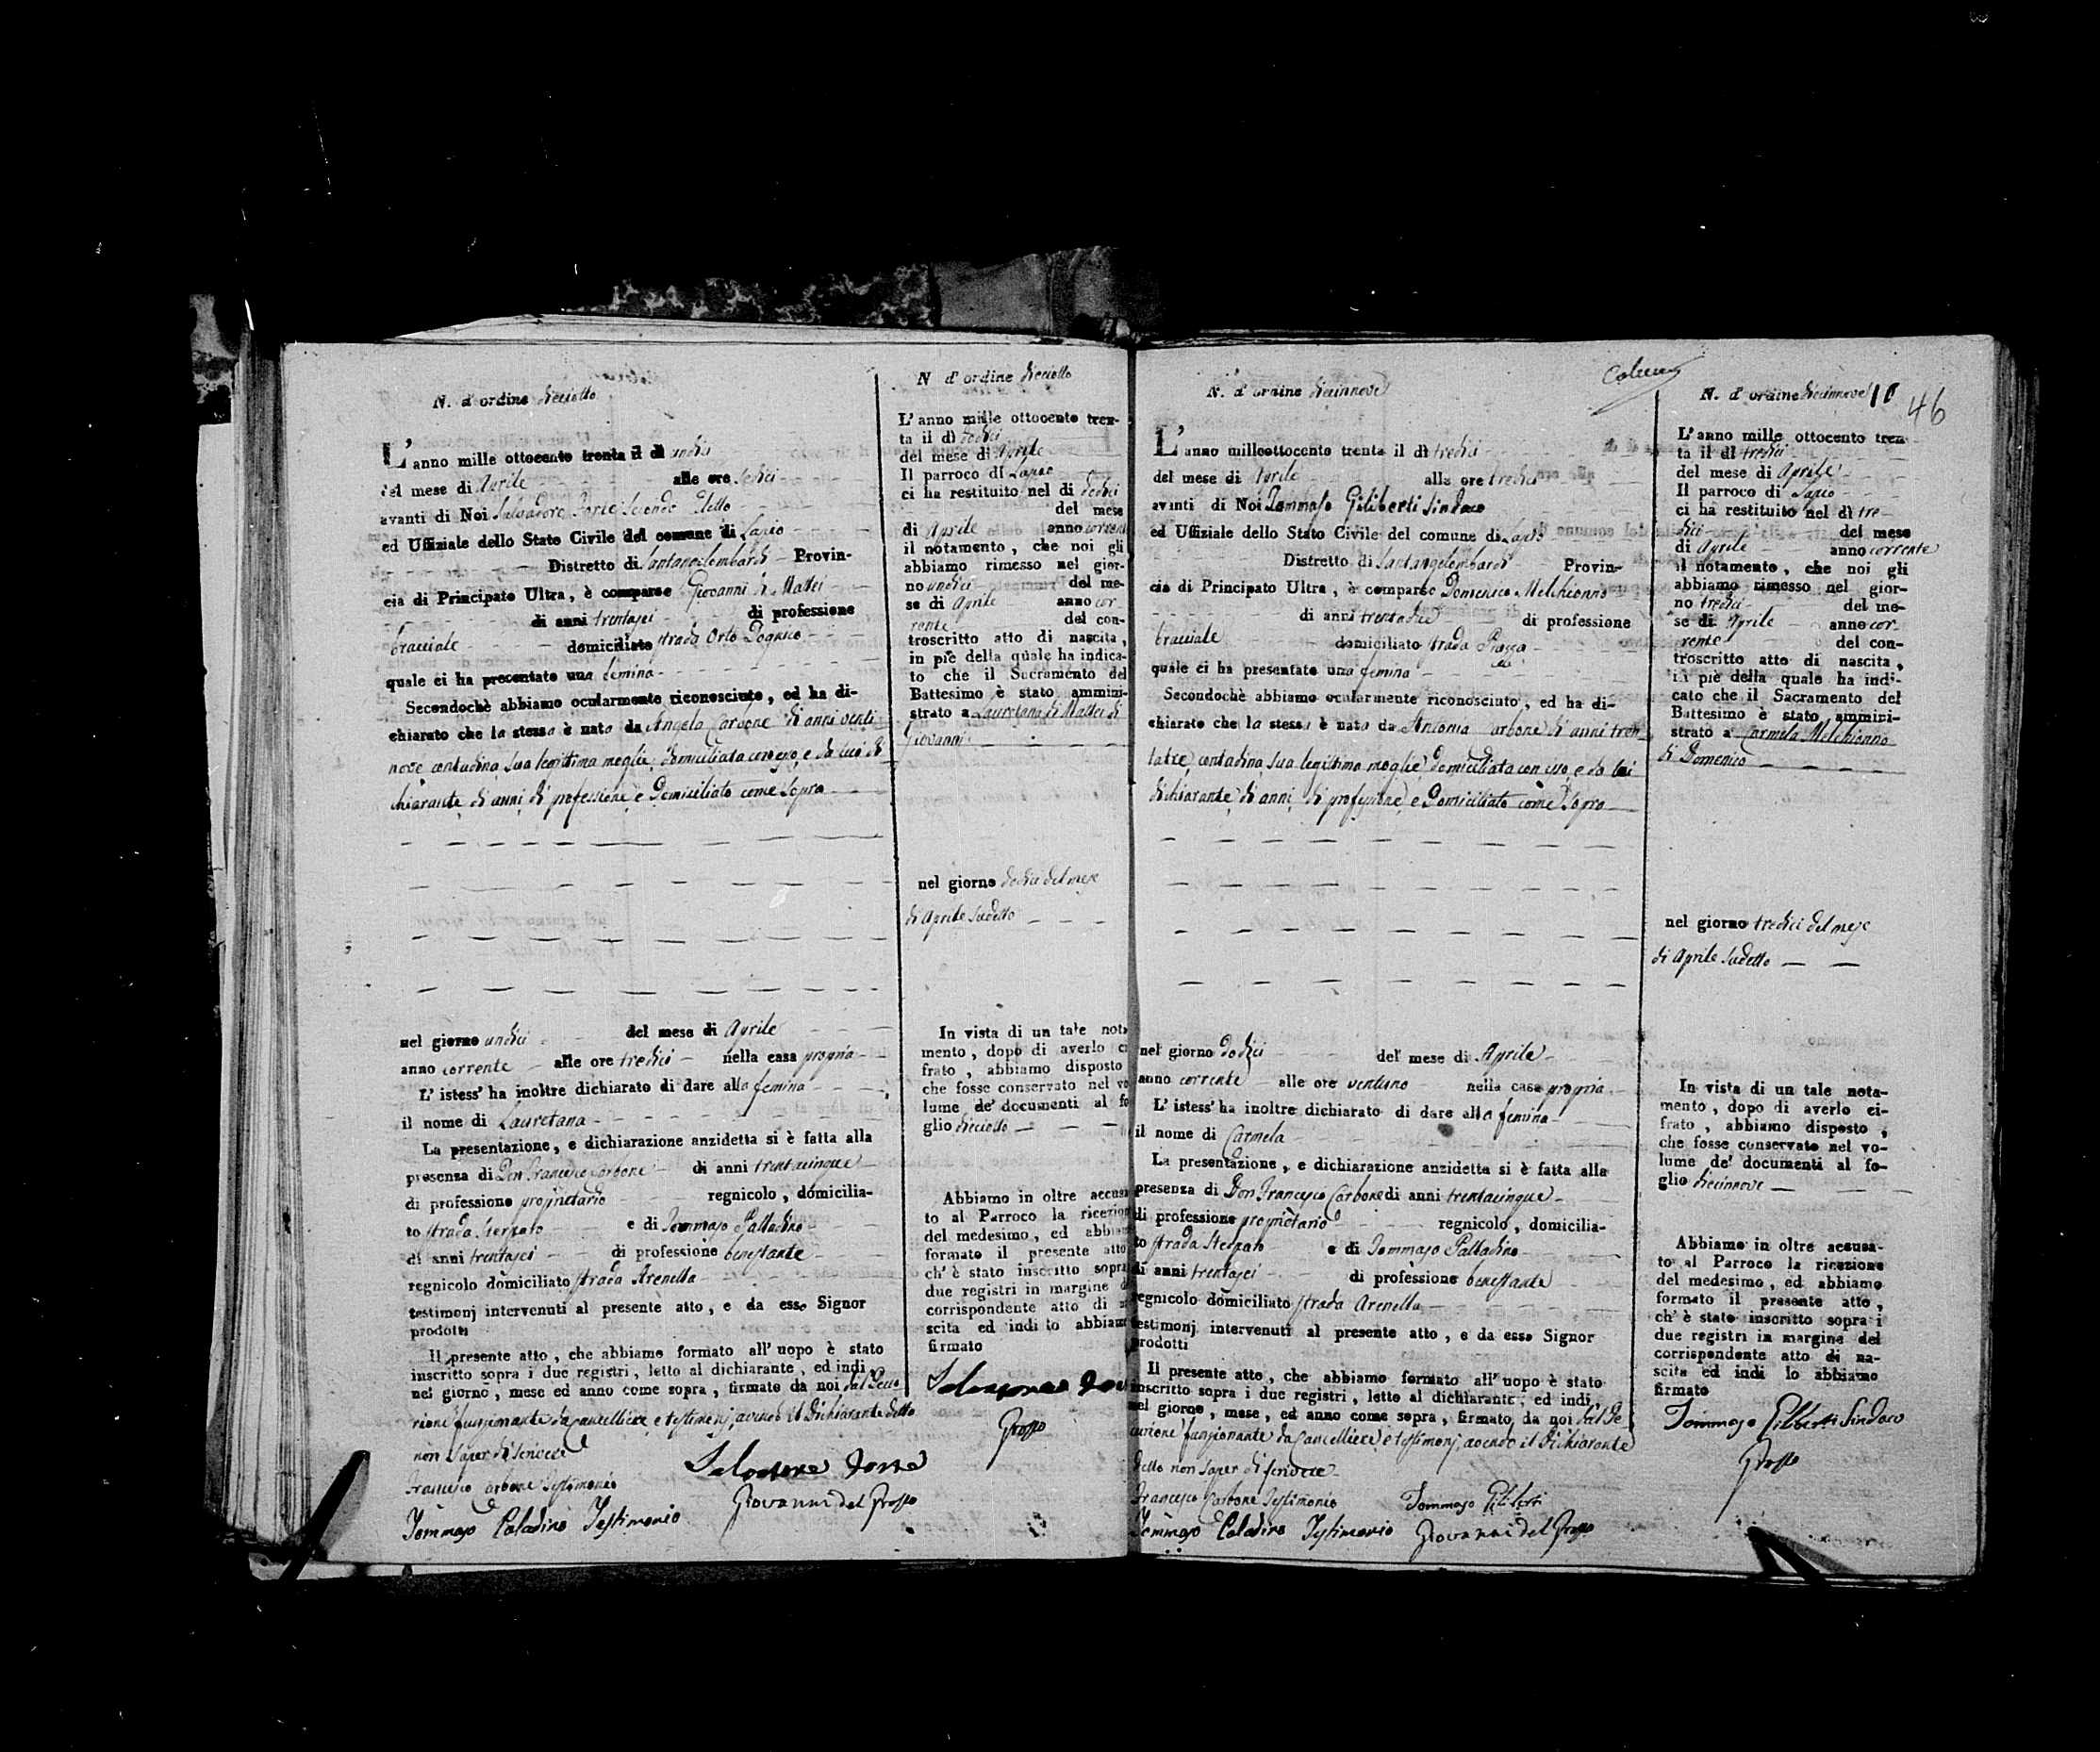 N. d'ordine dieciotto
L'anno mille ottocento trenta il dì undici
del mese di Aprile alle ore sedici
avanti di Noi Salvadore Forte Secondo Eletto
ed Uffiziale dello Stato Civile del comune di Lapio
Distretto di Santangelombardi Provin-
cia di Principato Ultra, è comparso Giovanni di Mattei
di anni trentasei di professione
bracciale domiciliato strada Orto Dogrico
quale ci ha presentato una femina
Secondochè abbiamo ocularmente riconosciuto, ed ha di-
chiarato che la stessa è nata da Angela Carbone di anni venti
nove contadina sua legittima moglie domiciliata con esso, e da lui di
chiarante di anni di professione e Domiciliato come sopra
nel giorno undici del mese di Aprile
anno corrente alle ore tredici nella casa propria
L'istess' ha inoltre dichiarato di dare alla femina
il nome di Lauretana
La presentazione, e dichiarazione anzidetta si è fatta alla
presenza di Don Francesco Carbone di anni trentacinque
di professione proprietario regnicolo, domicilia-
to strada Sterzato e di Tommaso Palladino
di anni trentasei di professione benestante
regnicolo domiciliato strada Arenella
testimonj intervenuti al presente atto, e da esso Signor
prodotti
Il presente atto, che abbiamo formato all'uopo è stato
inscritto sopra i due registri, letto al dichiarante, ed indi
nel giorno, mese ed anno come sopra, firmato da noi dal Decu
rione funzionante da Cancelliere, e testimonj avendo il Dichiarante detto
non saper di scrivere
Francesco Carbone Testimonio
Salvatore Forte
Tommaso Paladino Testimonio
Giovanni del Grosso
N d'ordine dieciotto
L'anno mille ottocento tren-
ta il dì dodici
del mese di Aprile
Il parroco di Lapio
ci ha restituito nel dì dodici
del mese
di Aprile anno corrente
il notamento, che noi gli
abbiamo rimesso nel gior-
no undici del me-
se di Aprile anno cor-
rente del con-
troscritto atto di nascita,
in piè della quale ha indica-
to che il Sacramento del
Battesimo è stato ammini-
strato a Lauretana di Mattei di
Giovanni
nel giorno dodici del mese
di Aprile sudetto
In vista di un tale nota
mento, dopo di averlo ci
frato, abbiamo disposto
che fosse conservato nel vo
lume de' documenti al fo
glio dieciotto
Abbiamo in oltre accusa
to al Parroco la ricezion
del medesimo, ed abbiam
formato il presente atto
ch'è stato inscritto sopra
due registri in margine d
corrispondente atto di na
scita ed indi lo abbiam
firmato
Salvatore For
Grosso
Calcery
N. d'ordine diecinnove
L'anno milleottocento trenta il dì tredici
del mese di Aprile alle ore tredici
avanti di Noi Tommaso Giliberti Sindaco
ed Uffiziale dello Stato Civile del comune di Lapio
Distretto di Santangelombardi Provin-
cia di Principato Ultra, è comparso Domenico Melchionno
di anni trentadue di professione
bracciale domiciliato strada Piazza
quale ci ha presentato una femina
Secondochè abbiamo ocularmente riconosciuto, ed ha di-
chiarato che la stessa è nata da Antonia Carbone di anni tren
tatre contadina sua legittima moglie domiciliata con esso, e da lui
dichiarante di anni di professione e Domiciliato come sopra
nel giorno dodici del mese di Aprile
anno corrente alle ore ventuno nella casa propria
L'istess' ha inoltre dichiarato di dare alla femina
il nome di Carmela
La presentazione, e dichiarazione anzidetta si è fatta alla
presenza di Don Francesco Carbone di anni trentacinque
di professione proprietario regnicolo, domicilia-
to strada Sterzato e di Tommaso Palladino
di anni trentasei di professione benestante
regnicolo domiciliato strada Arenella
testimonj intervenuti al presente atto, e da esso Signor
prodotti
Il presente atto, che abbiamo formato all'uopo è stato
inscritto sopra i due registri, letto al dichiarante, ed indi
nel giorno, mese, ed anno come sopra, firmato da noi dal De
curione funzionante da Cancelliere, e testimonj, avendo il Dichiarante
detto non saper di scrivere
Francesco Carbone Testimonio
Tommaso Giliberti
Tommaso Paladino Testimonio
Giovanni del Grosso
N. d'ordine diecinnove 10
46
L'anno mille ottocento tren
ta il dì tredici
del mese di Aprile
Il parroco di Lapio
ci ha restituito nel dì tre-
dici del mese
di Aprile anno corrente
il notamento, che noi gli
abbiamo rimesso nel gior-
no tredici del me-
se di Aprile anno cor-
rente del con-
troscritto atto di nascita,
in piè della quale ha indi-
cato che il Sacramento del
Battesimo è stato ammini-
strato a Carmela Melchionno
di Domenico
nel giorno tredici del mese
di Aprile sudetto
In vista di un tale nota-
mento, dopo di averlo ci-
frato, abbiamo disposto,
che fosse conservato nel vo-
lume de' documenti al fo-
glio diecinnove
Abbiamo in oltre accusa-
to al Parroco la ricezione
del medesimo, ed abbiamo
formato il presente atto,
ch'è stato inscritto sopra i
due registri in margine del
corrispondente atto di na-
scita ed indi lo abbiamo
firmato
Tommaso Giliberti Sindaco
Grosso